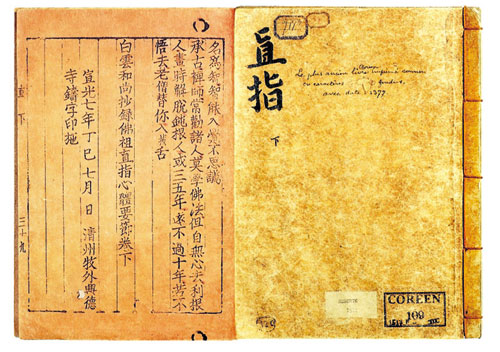 名爲
入
不思議
承古禪師常勸諸人莫學佛法但自無心去利根
人晝時解脫鈍根人或三五年遠不過十年若不
悟去老僧替你入
舌
白雲和尚抄錄佛祖直指心體要節卷下
宣光七年丁巳七月 日 清州牧外興德
寺鑄字印施
直 下
三十九
III
直指
下
Le plus ancien livre imprimé connu
en caractères
fondus,
avec date : 1377
COREEN
109